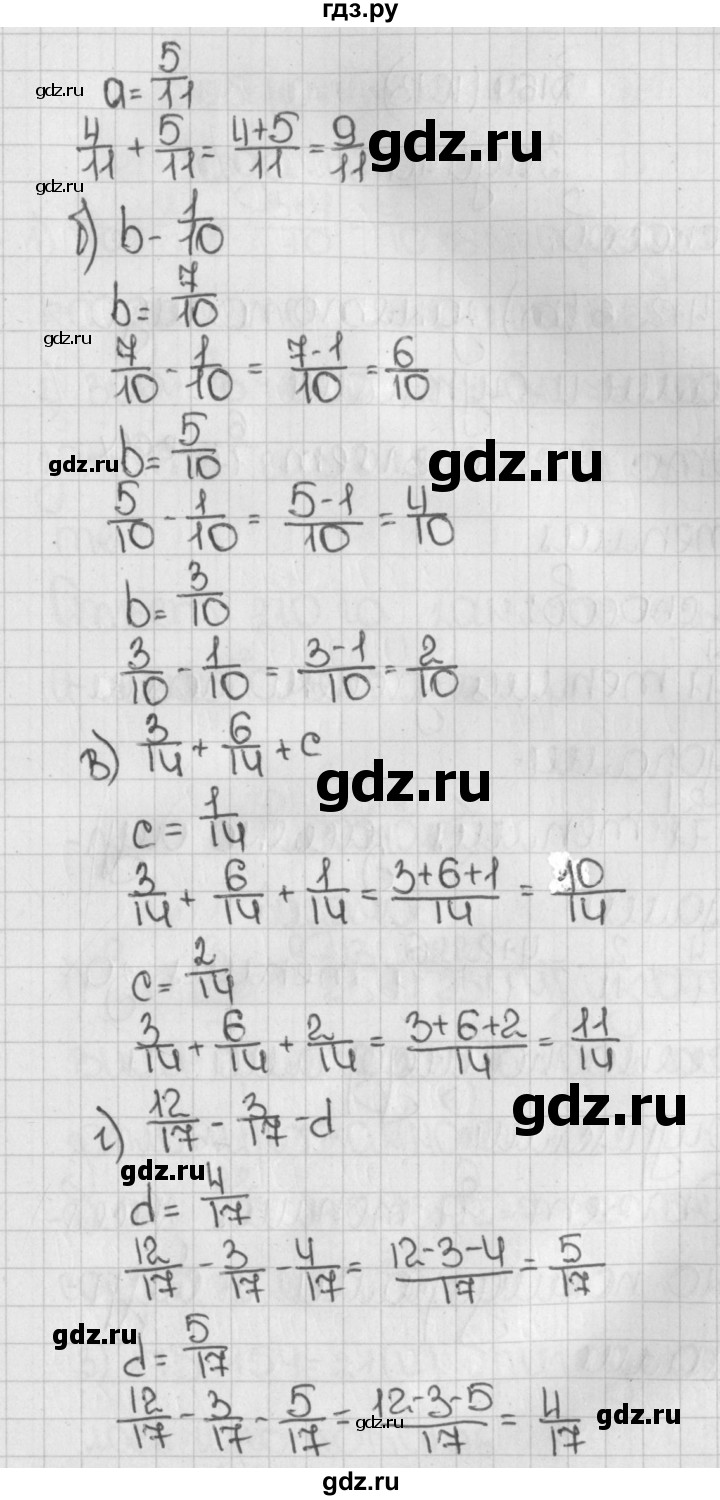 гдз.ру
gdz.ru a = 5/11
4/11 + 5/11 = 4+5/11 = 9/11 gdz.ru
gdz.ru
б) b - 1/10
b = 7/10
gdz.ru
7/10 - 1/10 = 7-1/10 = 6/10
gdz.ru b = 5/10 gdz.ru
5/10 - 1/10 = 5-1/10 = 4/10
b = 3/10
3/10 - 1/10 = 3-1/10 = 2/10
в) 3/14 + 6/14 + c
gdz.ru
c = 1/14
3/14 + 6/14 + 1/14 = 3+6+1/14 = 10/14
c = 2/14
3/14 + 6/14 + 2/14 = 3+6+2/14 = 11/14
г) 12/17 - 3/17 - d gdz.ru
gdz.ru
d = 4/17
12/17 - 3/17 - 4/17 = 12-3-4/17 = 5/17
gdz.ru
d = 5/17
12/17 - 3/17 - 5/17 = 12-3-5/17 = 4/17
gdz.ru gdz.ru
gdz.ru